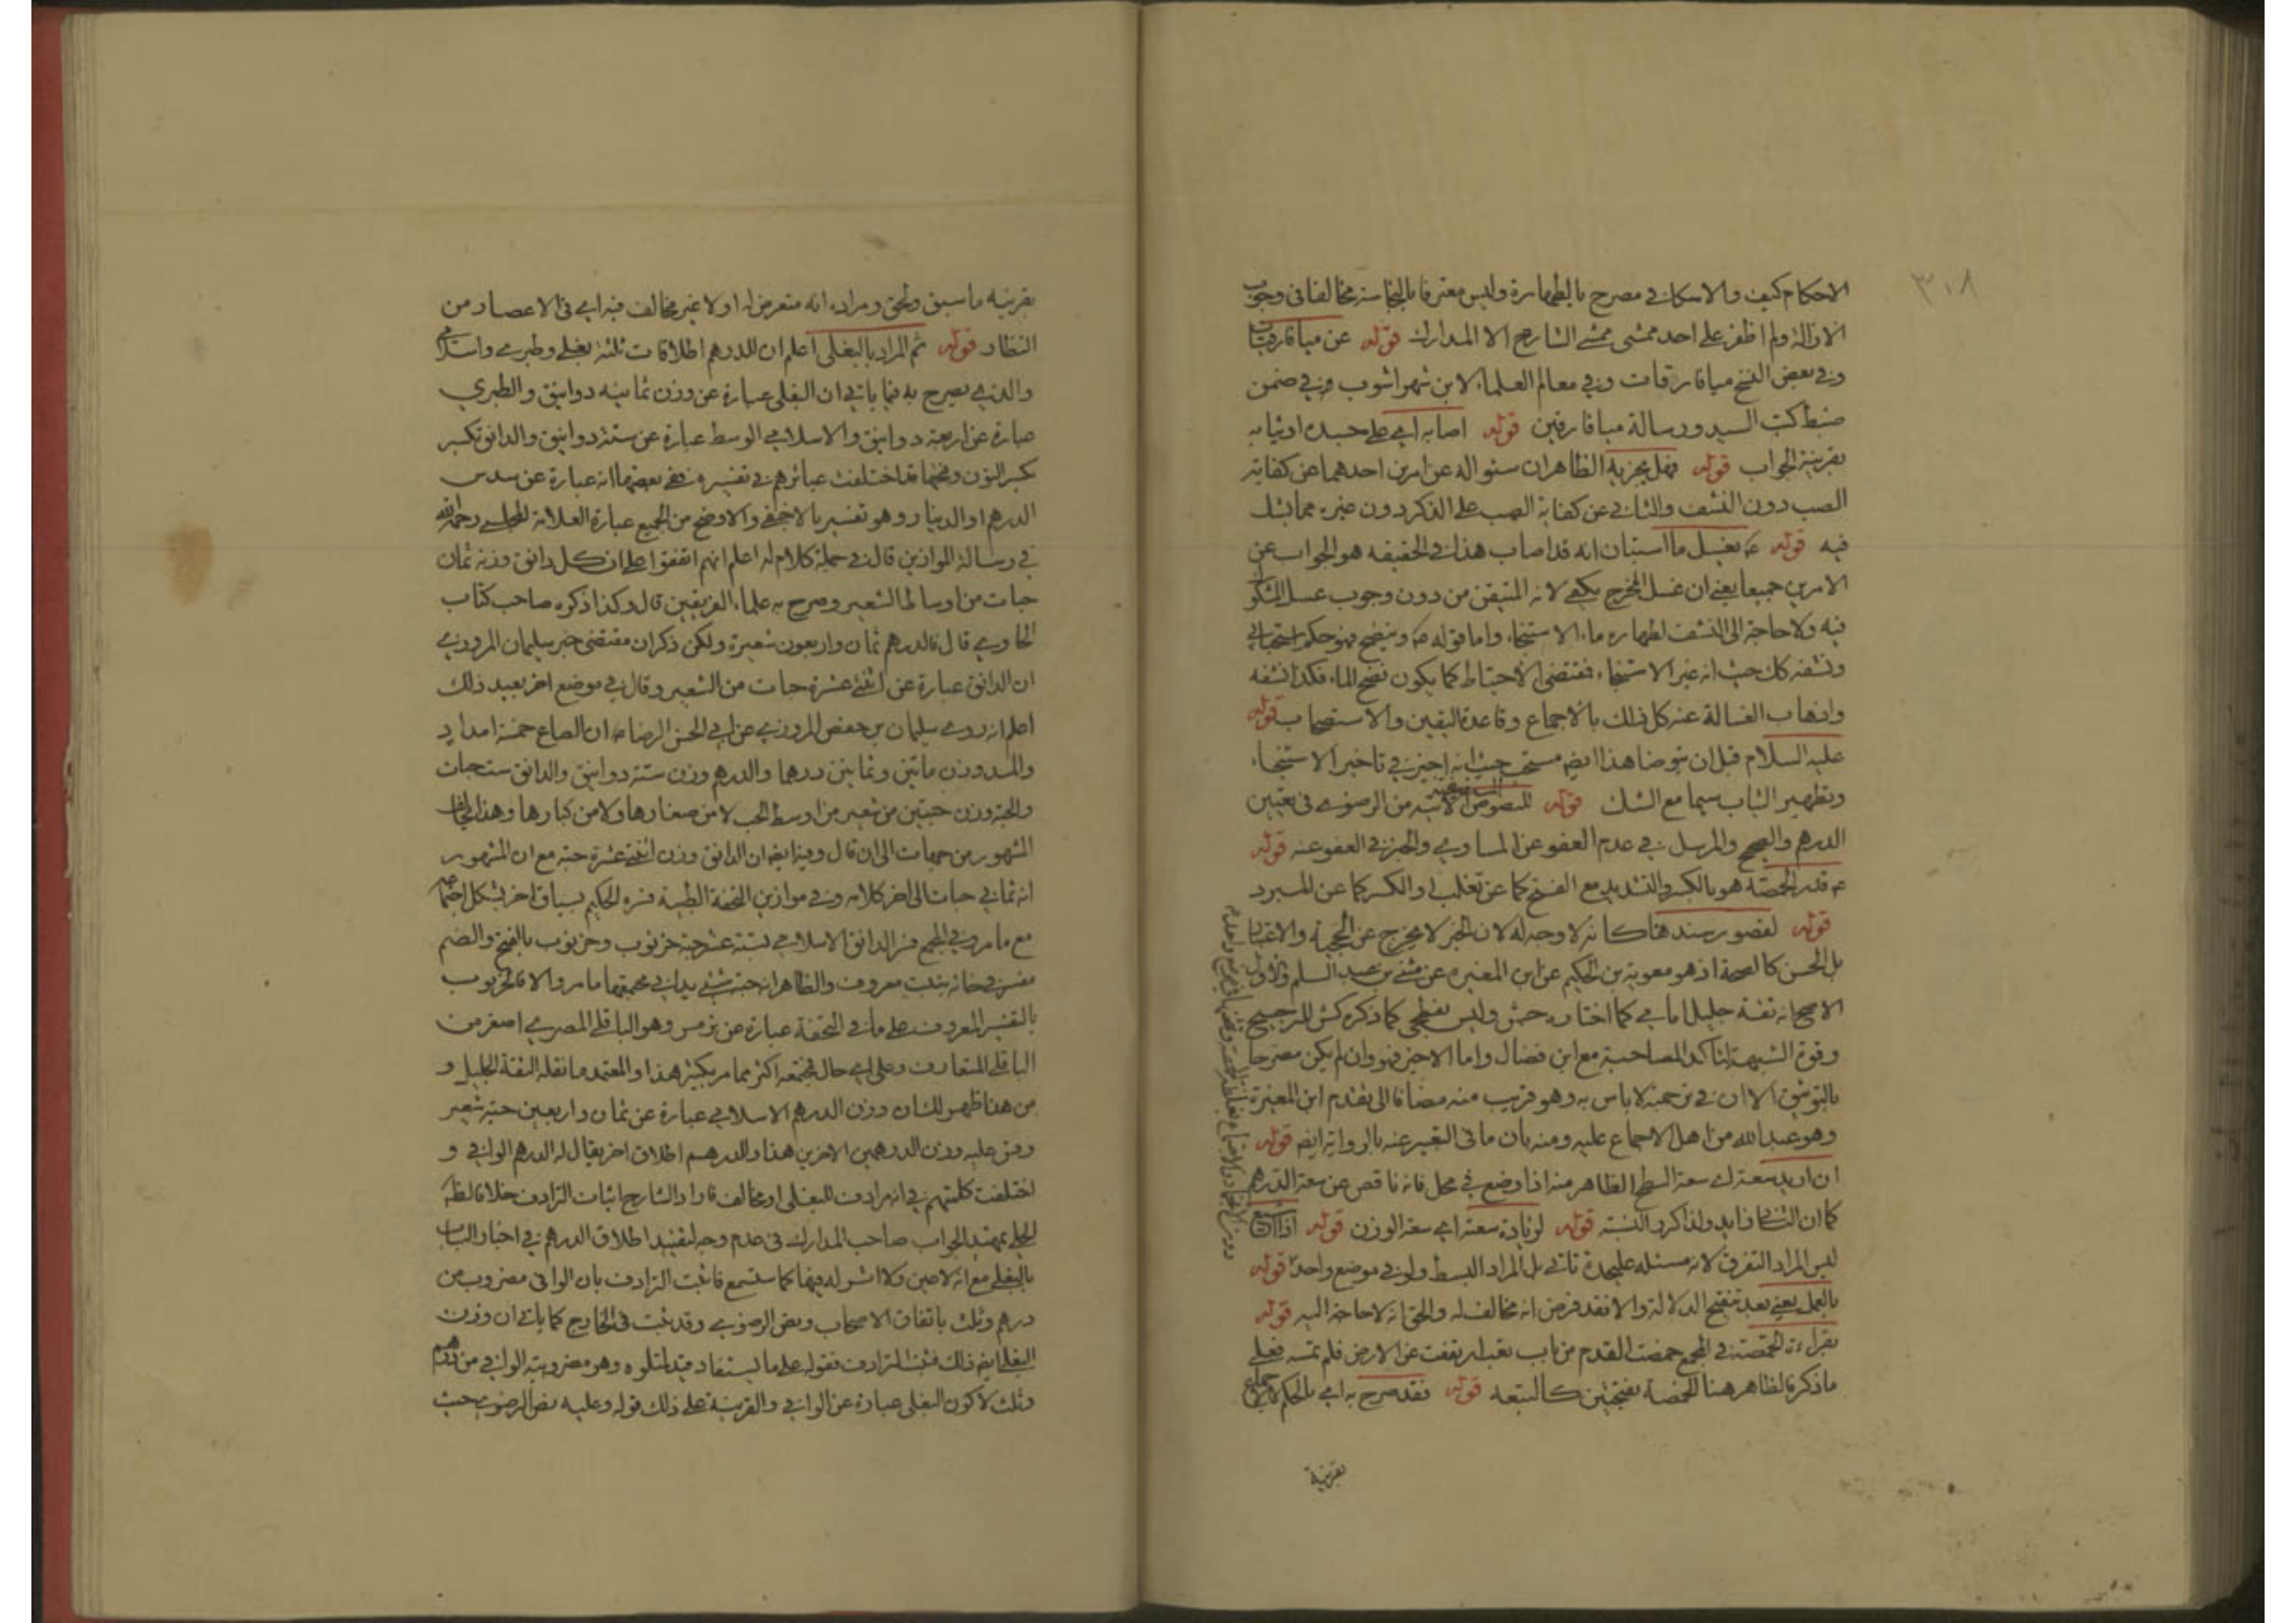 ٣٠٨
الاحكام كيف والاسكافي مصرح بالطهارة وليس معترفا بالنجاسة مخالفا في وجوب
الازالة ولم اظفر على احد ممشى ممشى الشارح الا المدارك قوله عن ميافارقيات
وفي بعض النسخ ميافارقات وفي معالم العلماء لابن شهراشوب وفي ضمن
ضبط كتب السيد ورسالة ميافارقين قوله اصابه اي على جسده او ثيابه
بقرينة الجواب قوله فهل يجزيه الظاهر ان سئواله عن امرين احدهما عن كفاية
الصب دون النشف والثاني عن كفاية الصب على الذكر دون غيره مما يشك
فيه قوله ع يغسل ما استبان انه قد اصاب هذا في الحقيقه هو الجواب عن
الامرين جميعا يعني ان غسل المخرج يكفي لانه المتيقن من دون وجوب غسل المشكوك
فيه ولا حاجة الى النشف لطهارة ماء الاستنجاء واما قوله ع وينضح فهو حكم استحبابي
ونشفه كك حيث انه غير الاستنجاء فمقتضى الاحتياط كما يكون نضح الماء فكذا نشفه
واذهاب الغسالة عنه كل ذلك بالاجماع وقاعدة اليقين والاستصحاب قوله
عليه السلام قبل ان يتوضا هذا ايضا مستحب حيث انه اجيز في تاخير الاستنجاء
وتطهير الثياب سيما مع الشك قوله للنصوص الاتية من الرضوي في تعيين
الدرهم والصحيح والمرسل في عدم العفو عن المساوي والخبر في العفو عنه قوله
ع قدر الحمصة هو بالكسر والتشديد مع الفتح كما عن تغلب او الكسر كما عن المبرد
قوله لقصور سندها كانه لا وجه له لان الخبر لا يخرج عن الحجية والاعتبار
بل الحسن كالصحة اذ هو معوية بن الحكيم عن ابن المغيره عن مثنى بن عبد السلم والاول
الاصح انه ثقة جليل امامي كما اختاره جش وليس بفطحي كما ذكره كش للترجيح
وقوة الشبهة لتاكد المصاحبة مع ابن فضال واما الاخير فهو وان لم يكن مصرحا
بالتوثيق الا ان في ترجمته لا باس به وهو قريب منه مضافا الى تقدم ابن المغيرة
وهو عبد الله من اهل الاجماع عليه ومنه بان ما في التعبير عنه بالرواية ايضا قوله
ان اريد سعته اي سعة السطح الظاهر منه اذا وضع في محل فانه ناقص عن سعة الدرهم
كما ان الثاني زايد ولذا كرر النسبة قوله لزيادة سعته اي سعة الوزن قوله اذا اتسع
ليس المراد التفرق لانه مسئله عليحدة تاتي بل المراد البسط ولو في موضع واحد قوله
بالعمل يعني بعد تنقيح الدلالة والا فقد فرض انه مخالف له والحق انه لا حاجة اليه قوله
بقراءة الخمصة في المجمع خمصت القدم من باب تعب ارتفعت عن الارض فلم تمسه فعلى
ما ذكره فالظاهر هنا الخمصة بفتحتين كالتبعه قوله فقد صرح به اي بالحكم الاجماع
بقرينة
بقرينه ما سبق ولحق ومراده انه متعرض له اولا غير مخالف فيه اي في الاعصار من
النظار قوله ثم المراد بالبغلي اعلم ان للدرهم اطلاقات ثلثة بغلي وطبري واسلامي
والذي يصرح به فيما ياتي ان البغلي عبارة عن وزن ثمانيه دوانيق والطبري
عبارة عن اربعة دوانيق والاسلامي الوسط عبارة عن ستة دوانيق والدانق تكسر
بكسر النون وفتحها قد اختلفت عبائرهم في تفسيره ففي بعضها انه عبارة عن سدس
الدرهم او الدينار وهو تفسير بالاخفى والاوضح من الجميع عبارة العلامة المجلسي رحمه الله
في رسالة الموازين قال في جملة كلام له اعلم انهم اتفقوا على ان كل دانق وزنه ثمان
حبات من اوساط الشعير وصرح به علماء الفريقين قال وكذا ذكره صاحب كتاب
الحاوي قال فالدرهم ثمان واربعون شعيرة ولكن ذكر ان مقتضى خبر سليمان المروزي
ان الدانق عبارة عن اثنتي عشرة حبات من الشعير وقال في موضع اخر بعيد ذلك
اعلم انه روى سليمان بن حفص المروزي عن ابي الحسن الرضا ع ان الصاع خمسة امداد
والمد وزن ماتين وثمانين درهما والدرهم وزن ستة دوانيق والدانق ست حبات
والحبة وزن حبتين من شعير من اوسط الحب لا من صغارها ولا من كبارها وهذا يخالف
المشهور من جهات الى ان قال وفيه ايضا ان الدانق وزن اثنتي عشرة حبة مع ان المشهور
انه ثماني حبات الى اخر كلامه وفي موازين التحفة الطبية فسره الحكيم بسياق اخر يشكل اجتماعه
مع ما مر وفي المجمع فسر الدانق الاسلامي بستة عشر حبة خرنوب وخرنوب بالفتح والضم
مفسر في خانه بنبت معروف والظاهر انه حبة شيء يدانى مجموعها ما مر والا فالخرنوب
بالتفسير المعروف على ما في التحفة عبارة عن ترمس وهو الباقلى المصري اصغر من
الباقلى المتعارف وعلى اي حال فمجتمعه اكثر مما مر بكثير هذا والمعتمد ما نقله الثقة الجليل و
من هنا ظهر لك ان وزن الدرهم الاسلامي عبارة عن ثمان واربعين حبة شعير
وقس عليه وزن الدرهمين الاخرين هذا وللدرهم اطلاق اخر يقال له الدرهم الوافي و
اختلفت كلمتهم في انه مرادف للبغلي او مخالف فاراد الشارح اثبات الترادف خلافا لظ
الحلي تمهيد الجواب صاحب المدارك في عدم وجه لتقييد اطلاق الدرهم في اخبار الباب
بالبغلي مع انه لا عين ولا اثر له فيها كما ستسمع فاثبت الترادف بان الوافي مضروب من
درهم وثلث باتفاق الاصحاب ونص الرضوي وقد ثبت في الخارج كما ياتي ان وزن
البغلي ايضا ذلك فثبت الترادف فقوله على ما يستفاد قيد لمتلوه وهو مضروبية الوافي من درهم
وثلث لا كون البغلي عبارة عن الوافي والقرينة على ذلك قوله وعليه نص الرضوي حيث